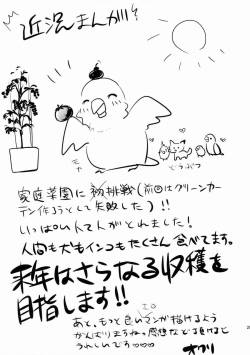 近況まんが
家庭菜園に初挑戦(前回はグリーンカー
テン作ろうとして失敗した)!!
いっぱい
とれました!
人間も犬もインコもたくさん食べてます。
来年はさらなる収穫を
目指します!!
あと、もっと エロ マンガ描けるよう
がんばりますね。感想など頂けると
うれしいです